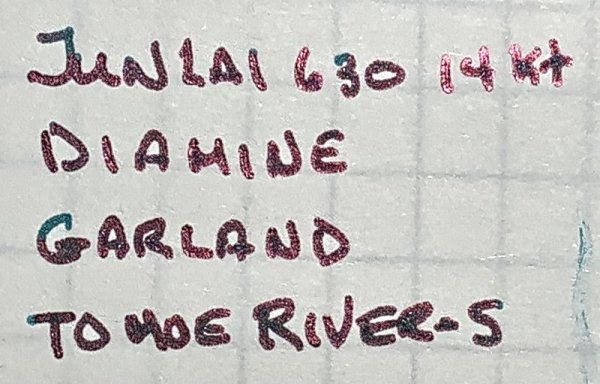 JUNLAI 630 14 Kt
DIAMINE
GARLAND
TOMOE RIVER-S